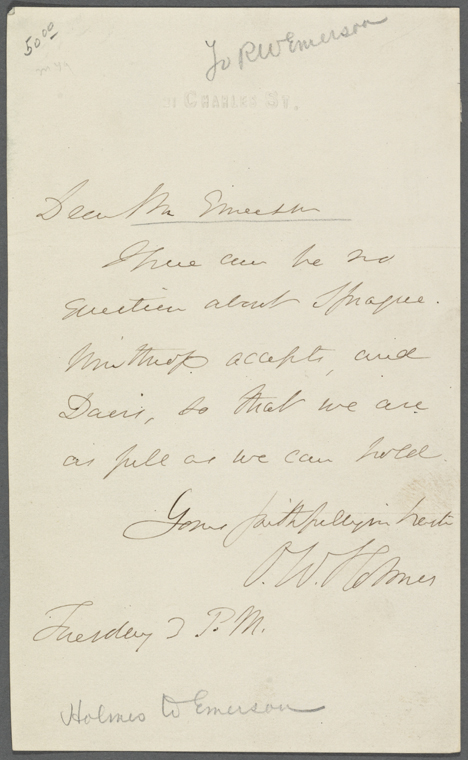 50.00
To RW Emerson
Charles St.
Dear Mr Emerson
There can be no
question about Sprague.
Winthrop accepts, and
Davis, so that we are
as full as we can hold.
Yours faithfully in haste
O. W. Holmes
Tuesday 3 P.M.
Holmes to Emerson